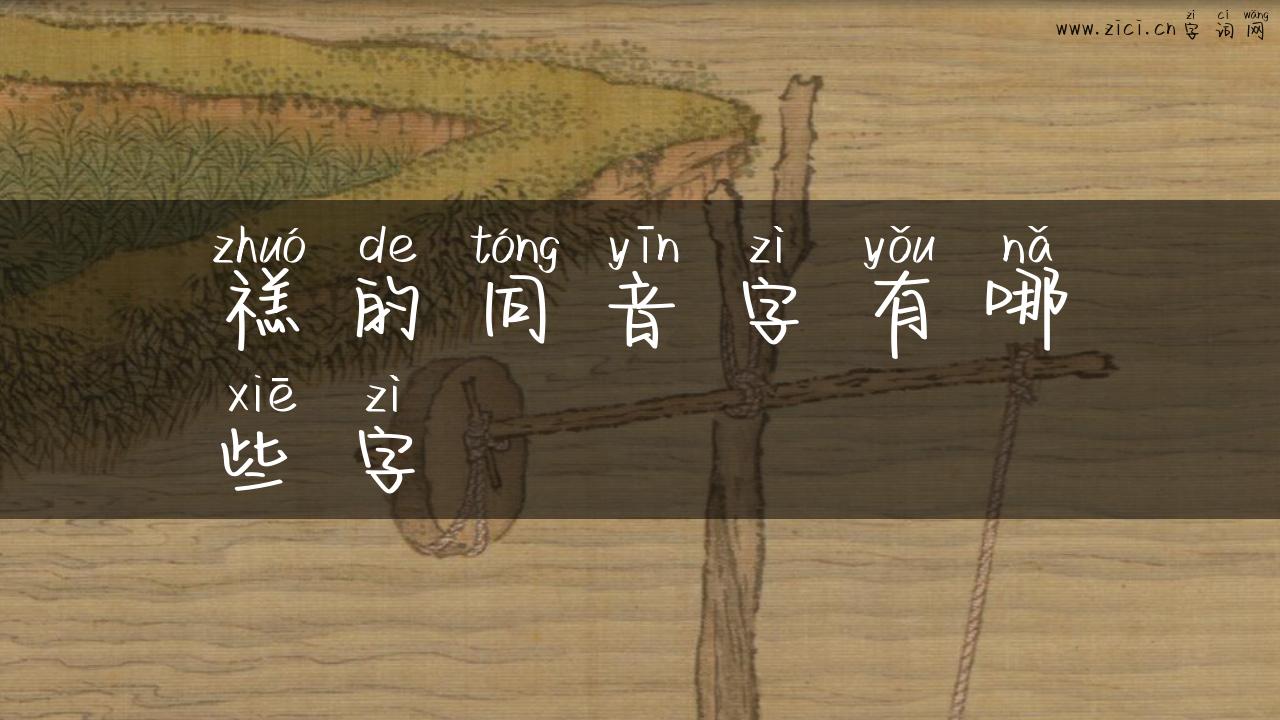 zì cí wǎng
www.zici.cn 字 词 网
zhuó de tóng yīn zì yǒu nǎ
禚 的 同 音 字 有 哪
xiē zì
些 字